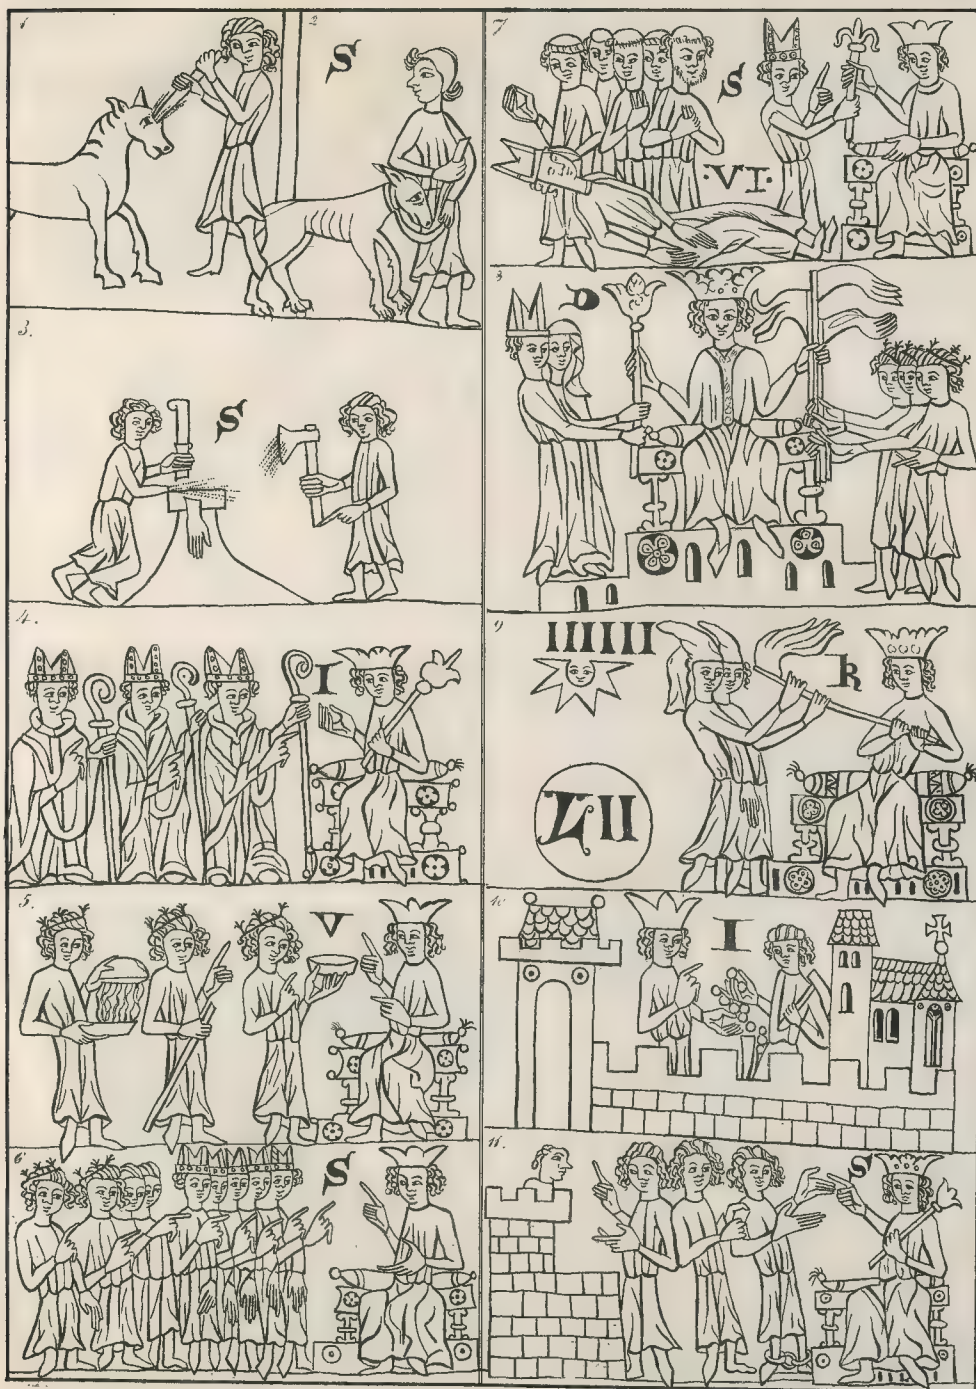 1
2
S
3.
S
4.
I
5.
V
6
S
7
S
·VI·
8
D
9
IIIIII
k
LII
10
I
11.
S